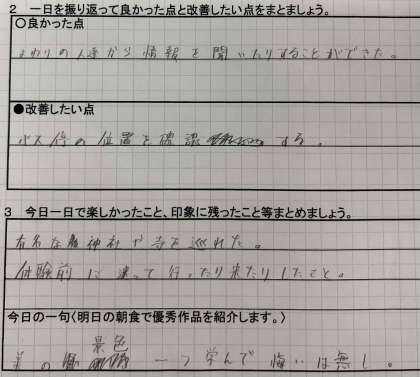 2　一日を振り返って良かった点と改善したい点をまとめましょう。
○良かった点
まわりの人達から情報を聞いたりすることができた。
●改善したい点
バス停の位置を確認する。
3　今日一日で楽しかったこと、印象に残ったこと等まとめましょう。
有名な神社や寺を巡れた。
体験前に迷って行ったり来たりしたこと。
今日の一句〈明日の朝食で優秀作品を紹介します。〉
景色
の 一つ学んで悔いは無し。